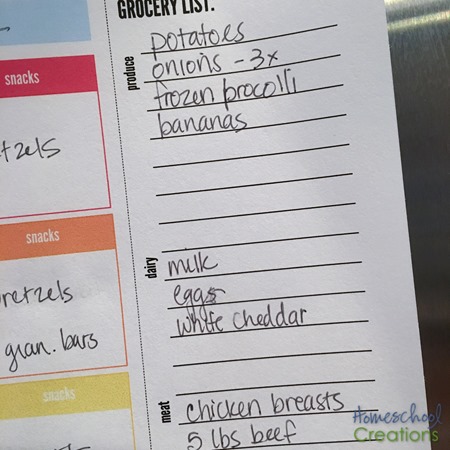 GROCERY LIST:
produce
potatoes
onions - 3x
frozen brocolli
bananas
dairy
milk
eggs
white cheddar
meat
chicken breasts
5 lbs beef
snacks
tzels
snacks
retzels
gran. bars
snacks
Homeschool
Creations